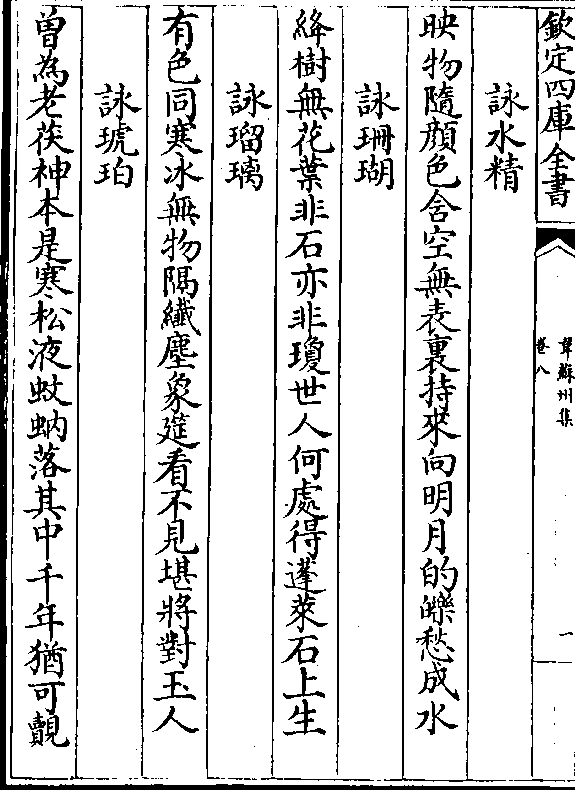 欽定四庫全書
韋蘇州集
卷八
一
詠水精
映物隨顔色含空無表裏持來向明月的皪愁成水
詠珊瑚
絳樹無花葉非石亦非瓊世人何處得蓬萊石上生
詠瑠璃
有色同寒冰無物隔纖塵象筵看不見堪將對玉人
詠琥珀
曽為老茯神本是寒松液蚊蚋落其中千年猶可覿